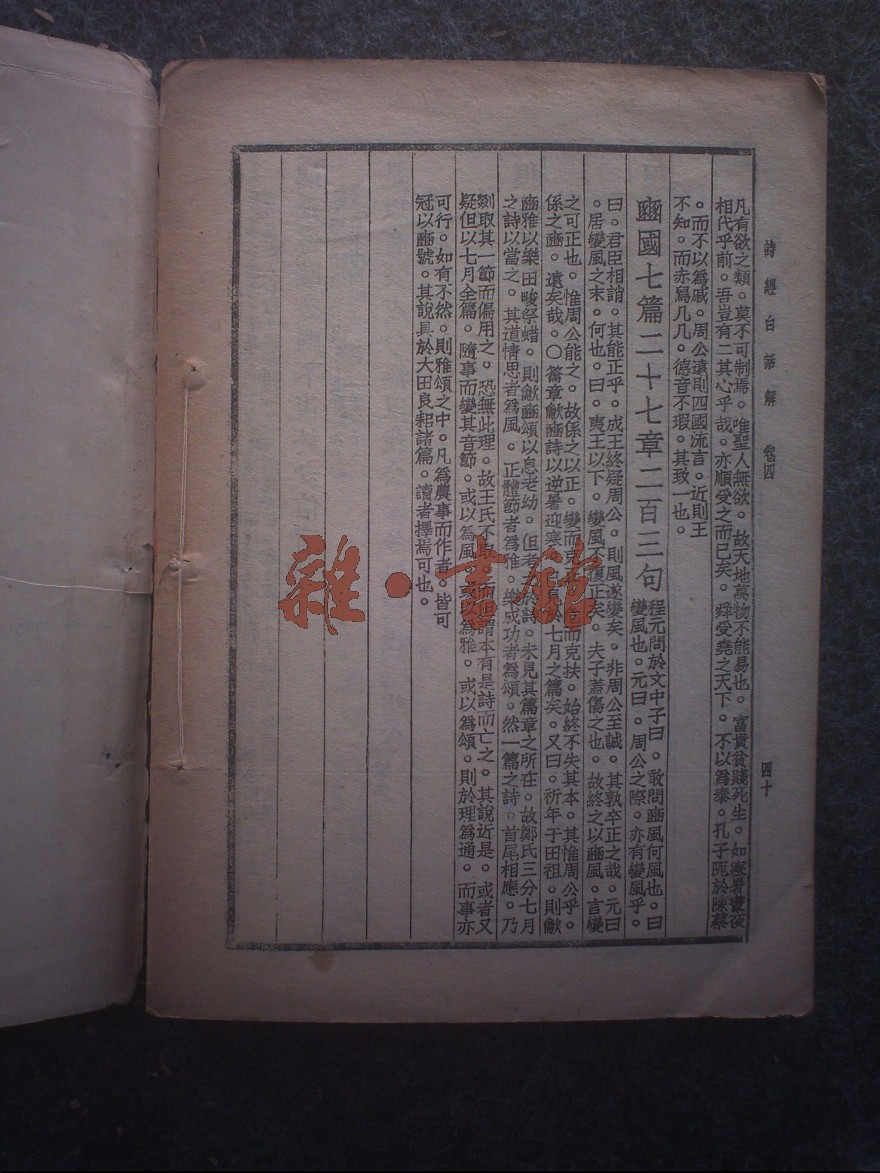 詩經白話解 卷四
四十
凡有欲之類。莫不可制焉。唯聖人無欲。故天地萬物不能易也。富貴貧賤死生。如寒暑晝夜
相代乎前。吾豈有二其心乎哉。亦順受之而已矣。舜受堯之天下。不以為泰。孔子阨於陳蔡
。而不以為戚。周公遠則四國流言。近則王
不知。而赤舄几几。德音不瑕。其致一也。
豳國七篇二十七章二百三句
程元問於文中子曰。敢問豳風何風也。曰
變風也。元曰。周公之際。亦有變風乎。
曰。君臣相誚。其能正乎。成王終疑周公。則風遂變矣。非周公至誠。其孰卒正之哉。元曰
。居變風之末。何也。曰。夷王以下。變風不復正矣。夫子蓋傷之也。故終之以豳風。言變
之可正也。惟周公能之。故係之以正。變而克正。危而克扶。始終不失其本。其惟周公乎。
係之豳。遠矣哉。〇籥章龡豳詩以逆暑迎寒。已見於七月之篇矣。又曰。祈年于田祖。則龡
豳雅以樂田畯祭蜡。則龡豳頌以息老幼。但考之於詩。未見其篇章之所在。故鄭氏三分七月
之詩以當之。其道情思者為風。正體節者為雅。樂成功者為頌。然一篇之詩。首尾相應。乃
剟取其一節而偏用之。恐無此理。故王氏不取。而但謂本有是詩而亡之。其說近是。或者又
疑但以七月全篇。隨事而變其音節。或以為風。或以為雅。或以為頌。則於理為通。而事亦
可行。如有不然。則雅頌之中。凡為農事而作者。皆可
冠以豳號。其說具於大田良耜諸篇。讀者擇焉可也。
雜·書館